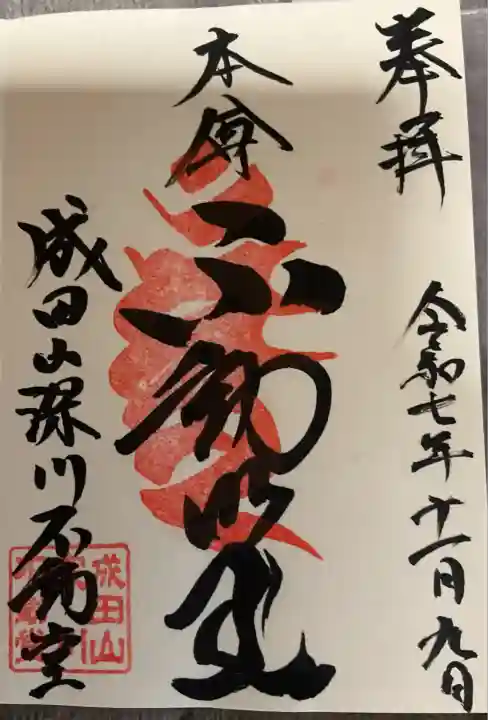 奉拝
令和七年十一月九日
本尊
不動明王
成田山深川不動堂
成田山